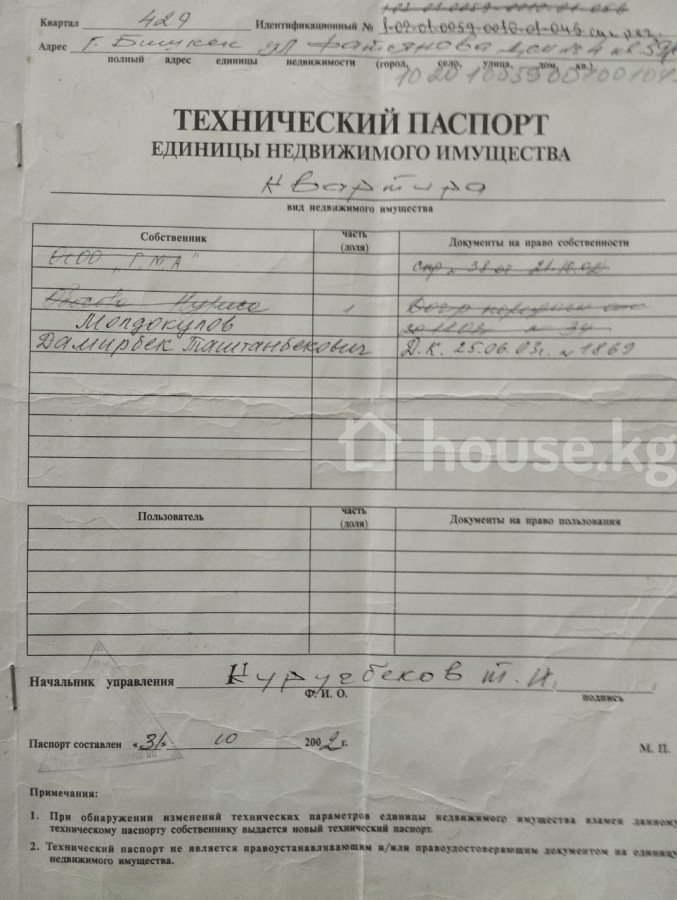 Квартал 429 Идентификационный № 1-02-01-0059-0010-01-046
Адрес г. Бишкек ул
полный адрес единицы недвижимости (город, село, улица, дом, кв.)
ТЕХНИЧЕСКИЙ ПАСПОРТ
ЕДИНИЦЫ НЕДВИЖИМОГО ИМУЩЕСТВА
квартира
вид недвижимого имущества
Собственник часть (доля) Документы на право собственности
ОсОО
1
Молдокулов
Дамирбек Таштанбекович Д.К. 25.06.03г. № 1869
house.kg
Пользователь часть (доля) Документы на право пользования
Начальник управления Т. И.
Ф. И. О. подпись
Паспорт составлен «31» 10 2002 г. М. П.
Примечания:
1. При обнаружении изменений технических параметров единицы недвижимого имущества взамен данному
техническому паспорту собственнику выдается новый технический паспорт.
2. Технический паспорт не является правоустанавливающим и/или правоудостоверяющим документом на единицу
недвижимого имущества.